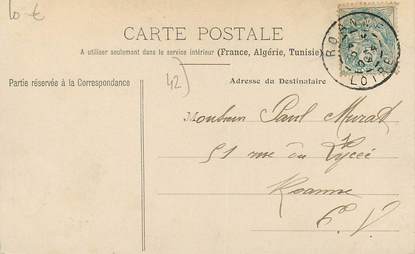 10 €
CARTE POSTALE
A utiliser seulement dans le service intérieur (France, Algérie, Tunisie)
Partie réservée à la Correspondance
Adresse du Destinataire
42)
Monsieur Paul Murat
51 rue du Lycée
Roanne
E.V.
ROANNE
LOIRE